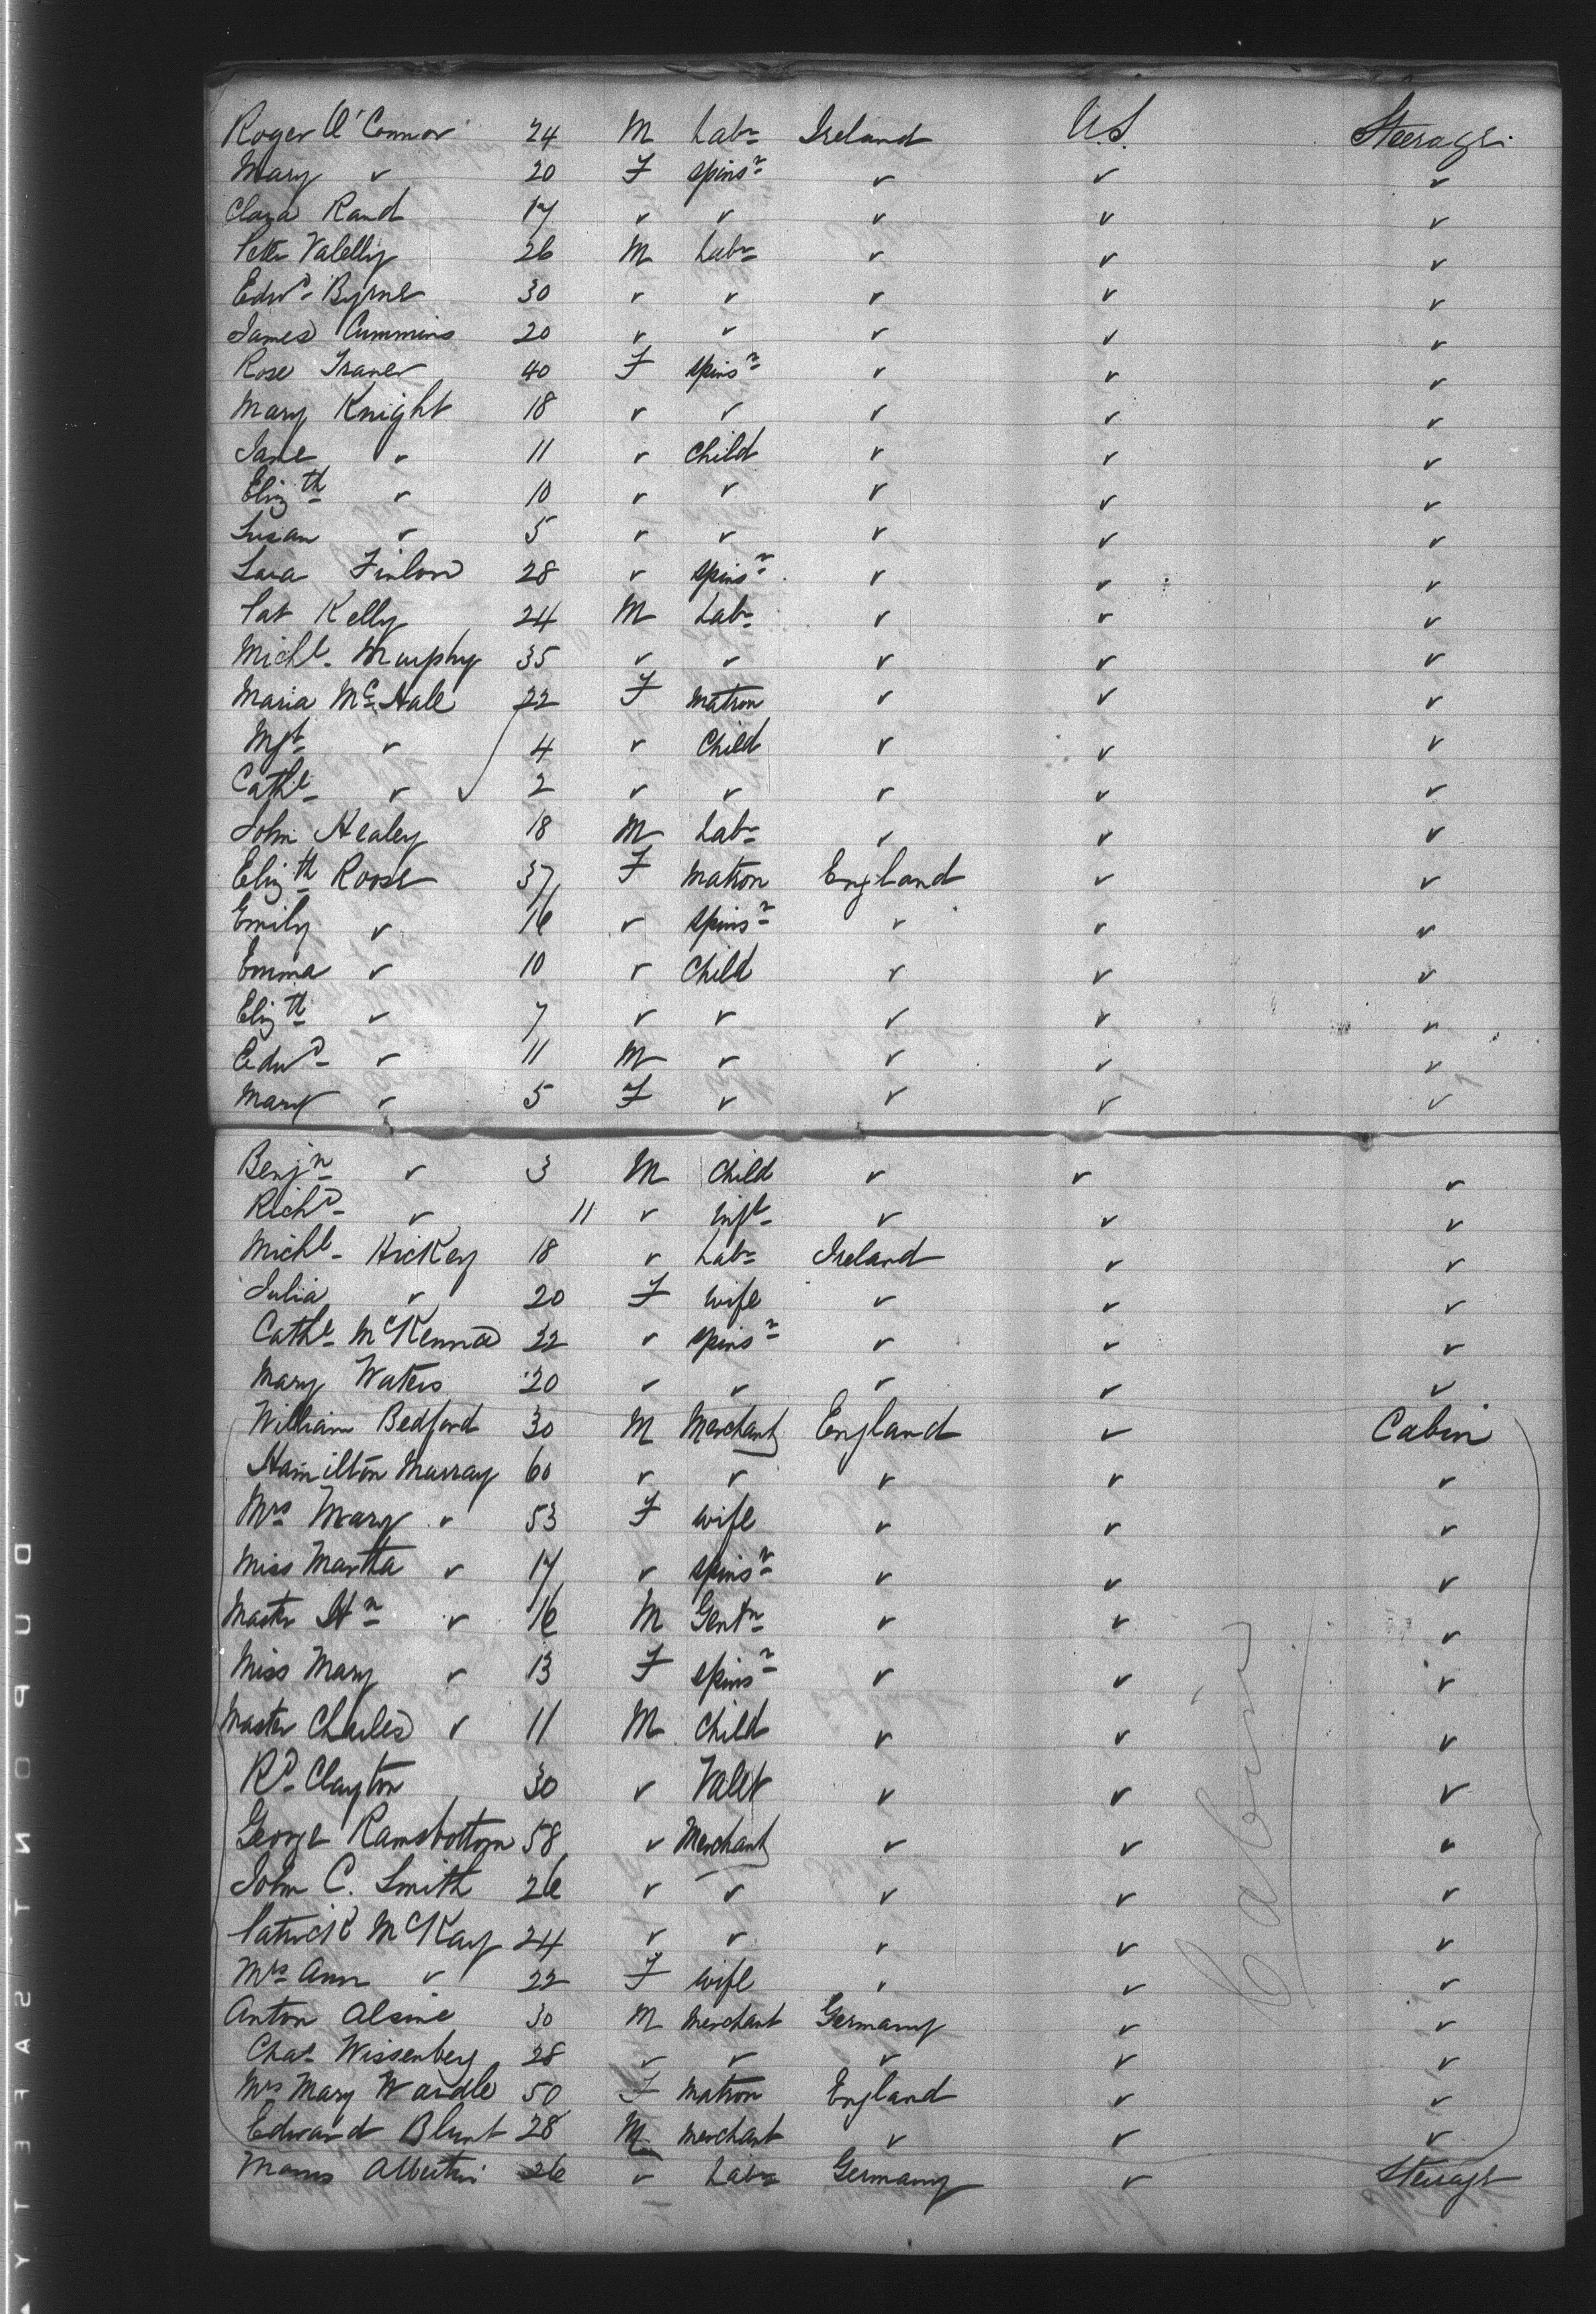 Roger O'Connor 24 M Labr Ireland U.S. Steerage
Mary v 20 F spinsr v v v
Clara Rand 17 v v v v v
Peter Valelly 26 M Labr v v v
Edwd Byrne 30 v v v v v
James Cummins 20 v v v v v
Rose Traner 40 F spinsr v v v
Mary Knight 18 v v v v v
Jane v 11 v Child v v v
Elizth v 10 v v v v v
Susan v 5 v v v v v
Sara Finlon 28 v spinsr v v v
Pat Kelly 24 M Labr v v v
Michl Murphy 35 v v v v v
Maria McHale 22 F Matron v v v
Mgt v 4 v Child v v v
Cathe v 2 v v v v v
John Healey 18 M Labr v v v
Elizth Roose 37 F Matron England v v
Emily v 16 v spinsr v v v
Emma v 10 v Child v v v
Elizth v 7 v v v v v
Edwd v 11 M v v v v
Mary v 5 F v v v v
Benjn v 3 M Child v v v
Richd v 11 v Inft v v v
Michl Hickey 18 v Labr Ireland v v
Julia v 20 F Wife v v v
Cathe McKenna 22 v spinsr v v v
Mary Waters 20 v v v v v
William Bedford 30 M Merchant England v Cabin
Hamilton Murray 60 v v v v v
Mrs Mary v 53 F Wife v v v
Miss Martha v 17 v spinsr v v v
Master Hn v 16 M Gentn v v v
Miss Mary v 13 F spinsr v v v
Master Charles v 11 M Child v v v
Rd Clayton 30 v Valet v v v
George Ramsbottom 58 v Merchant v v v
John C. Smith 26 v v v v v
Patrick McKay 24 v v v v v
Mrs Ann v 22 F Wife v v v
Anton Alsine 30 M Merchant Germany v v
Chas Wissenberg 28 v v v v v
Mrs Mary Wardle 50 F Matron England v v
Edward Blunt 28 M Merchant v v v
Albertini 26 v Labr Germany v Steerage
Cabin
DUPONT SAFETY